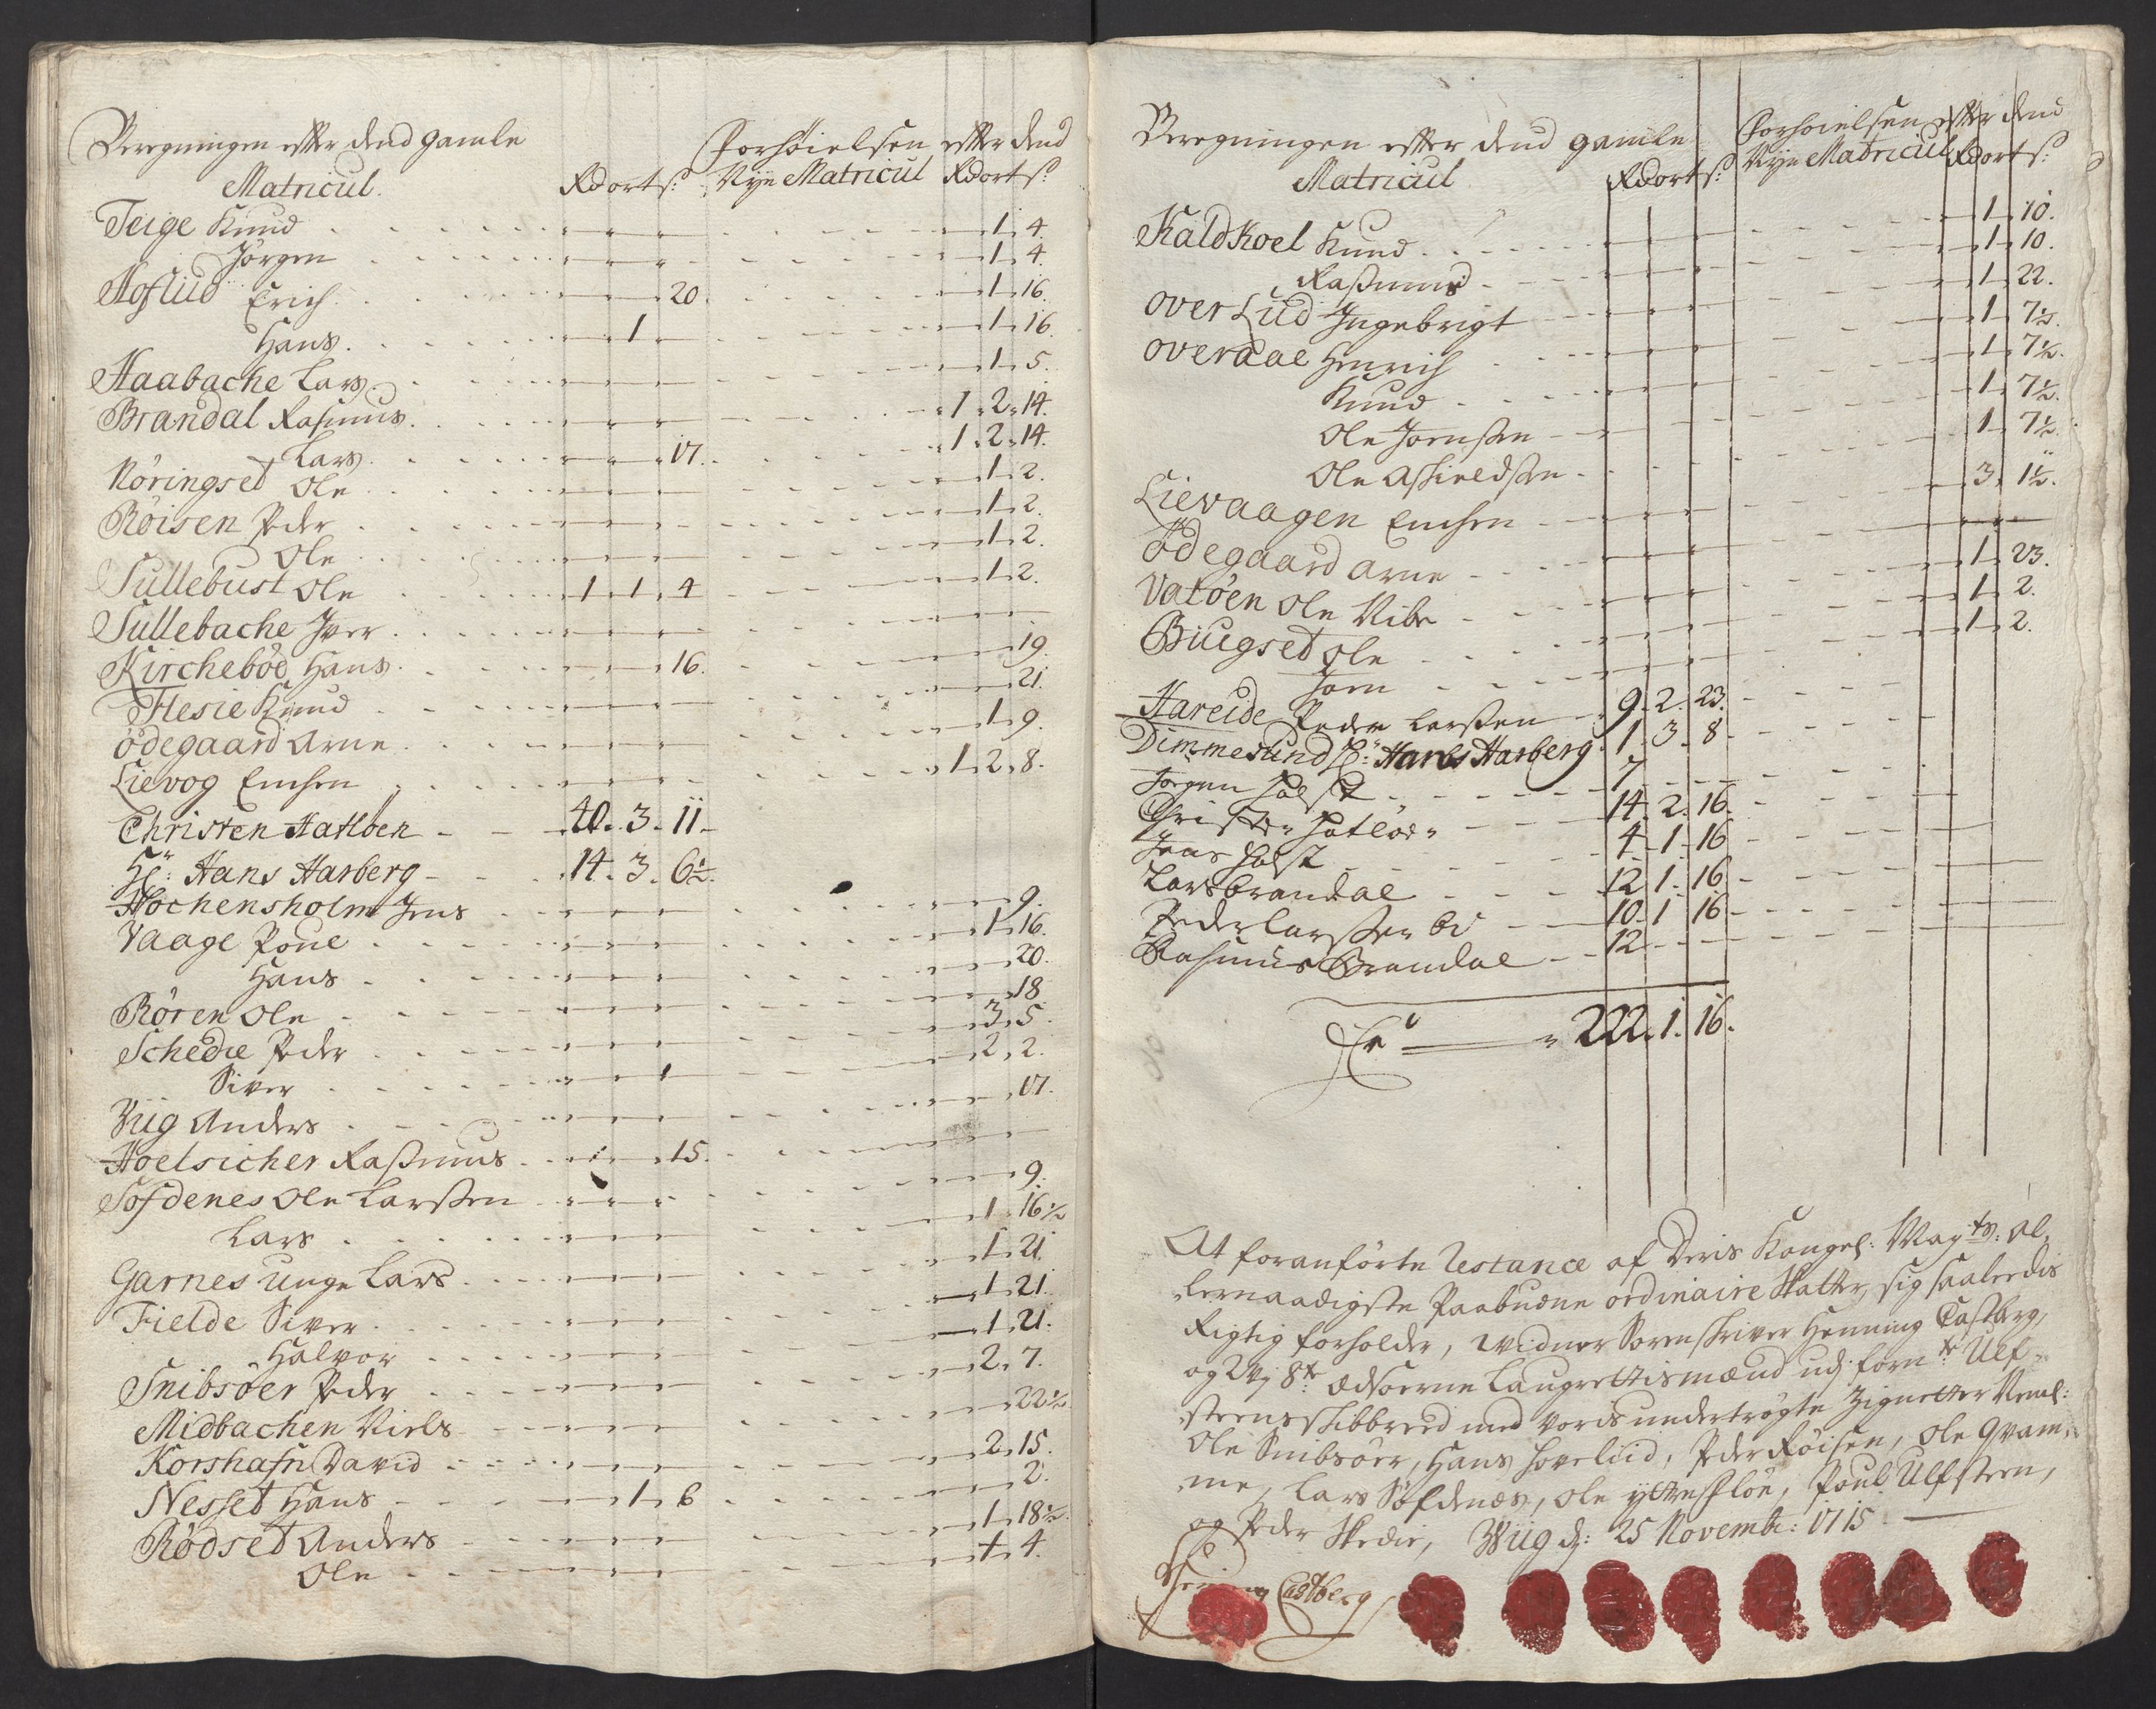 Beregningen effter dend gamle Matricul. Rd ort s: Forhöielsen effter dend Nÿe Matricul Rd ort s:
Teige Knud 1. 4.
Jörgen 1. 4.
Hoflüd Erich 20. 1. 16.
Hans 1 1. 16.
Haabache Lars 1. 5.
Brandal Rasmus 1. 2. 14.
Lars 17. 1. 2. 14.
Nöringset Ole 1. 2.
Röisen Peder 1. 2.
Ole 1. 2.
Tullebust Ole 1. 1. 4 1. 2.
Tullebache Iver
Kircheböe Hans 16. 19.
Flesie Knud 21.
Ödegaard Arne 1. 9.
Lievog Emhen 1. 2. 8.
Christen Hatlöen 40. 3. 11
Hr: Hans Harberg 14. 3. 6½.
Hochensholm Jens 9.
Vaage Poue 1. 16.
Hans 20.
Rören Ole 18
Schedie Peder 3. 5.
Siver 2. 2.
Viig Anders 17.
Hoelsicher Rasmus 15.
Söfdenes Ole Larsen 9.
Lars 1 16½
Garnes Unge Lars 1. 21.
Fielde Siver 1. 21.
Halvor 1. 21.
Snibsöer Peder 2. 7.
Midbachen Niels 22½.
Korshafn David 2. 15.
Nesset Hans 1. 6 2.
Rödset Anders 1. 18½.
Ole 1. 4.
Beregningen effter dend gamle Matricul Rd ort s: Forhöielsen effter dend Nÿe Matricul Rd ort s:
Kaldkoel Knud 1. 10.
Rasmus 1. 10.
Over Liid Ingebrigt 1. 22.
Overaae Henrich 1. 7½.
Knud 1. 7½.
Ole Jörnsen 1. 7½.
Ole Askieldsen 1. 7½.
Lievaagen Emhen 3. 1½.
Ödegaard Arne
Vatöen Ole Vibe 1. 23.
Biugset Ole 1. 2.
Jörn 1. 2.
Hareide Peder Larsen 9. 2. 23.
Dimmesund Hr: Hans Harberg 1. 3. 8
Jörgen Holst 7
Christen Hatlöen 14. 2. 16.
Jens Holst 4. 1. 16
Lars Brandal 12. 1. 16
Peder Larsen 10. 1 16
Rasmus Brandal 12
222. 1. 16.
At foranförte Restance af Deris Kongel: Mayts: al,
lernaadigste Paabudne ordinaire Skatter, sig saaledis
Rigtig forholder, Widner Sorenskriver Henning Castberg,
og Wj 8te Ædsorne Laugrettismænd udj fornte Ulf-
steens skibbreed med Vores undertrögte Zignetter Neml:
Ole Snibsöer, Hans Hovliid, Peder Röisen, Ole Qvam-
me, Lars Söfdenæs, Ole ÿtteflöe, Poul Ulfsteen,
og Peder Skedie, Wiig d: 25 Novembr: 1715.
Henning Castberg